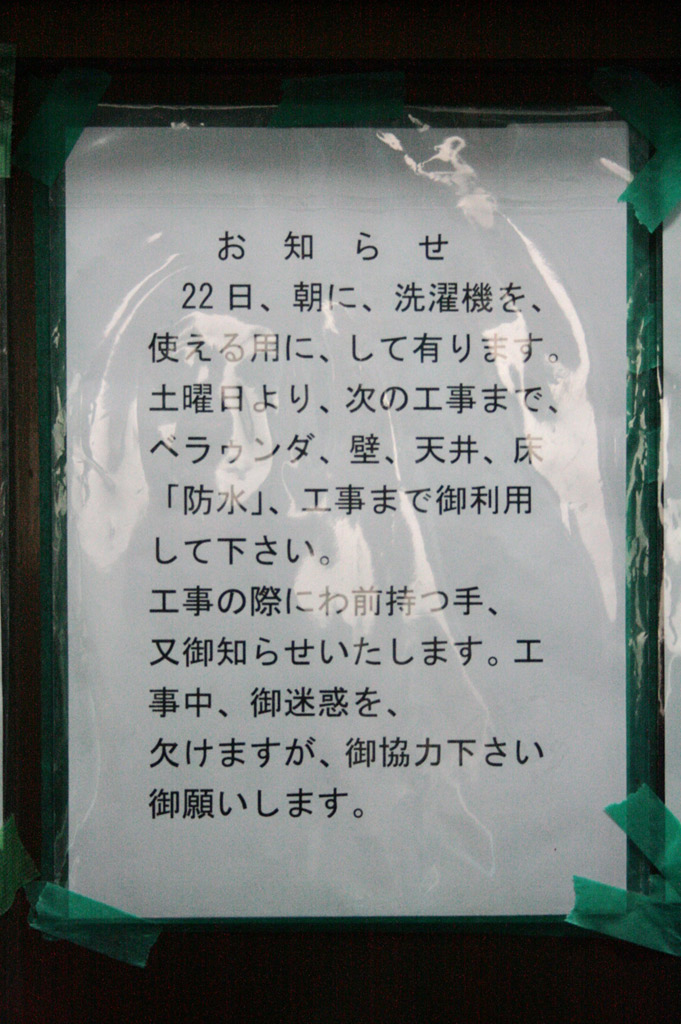 お知らせ
22日、朝に、洗濯機を、
使える用に、して有ります。
土曜日より、次の工事まで、
ベラゥンダ、壁、天井、床
「防水」、工事まで御利用
して下さい。
工事の際にわ前持つ手、
又御知らせいたします。工
事中、御迷惑を、
欠けますが、御協力下さい
御願いします。